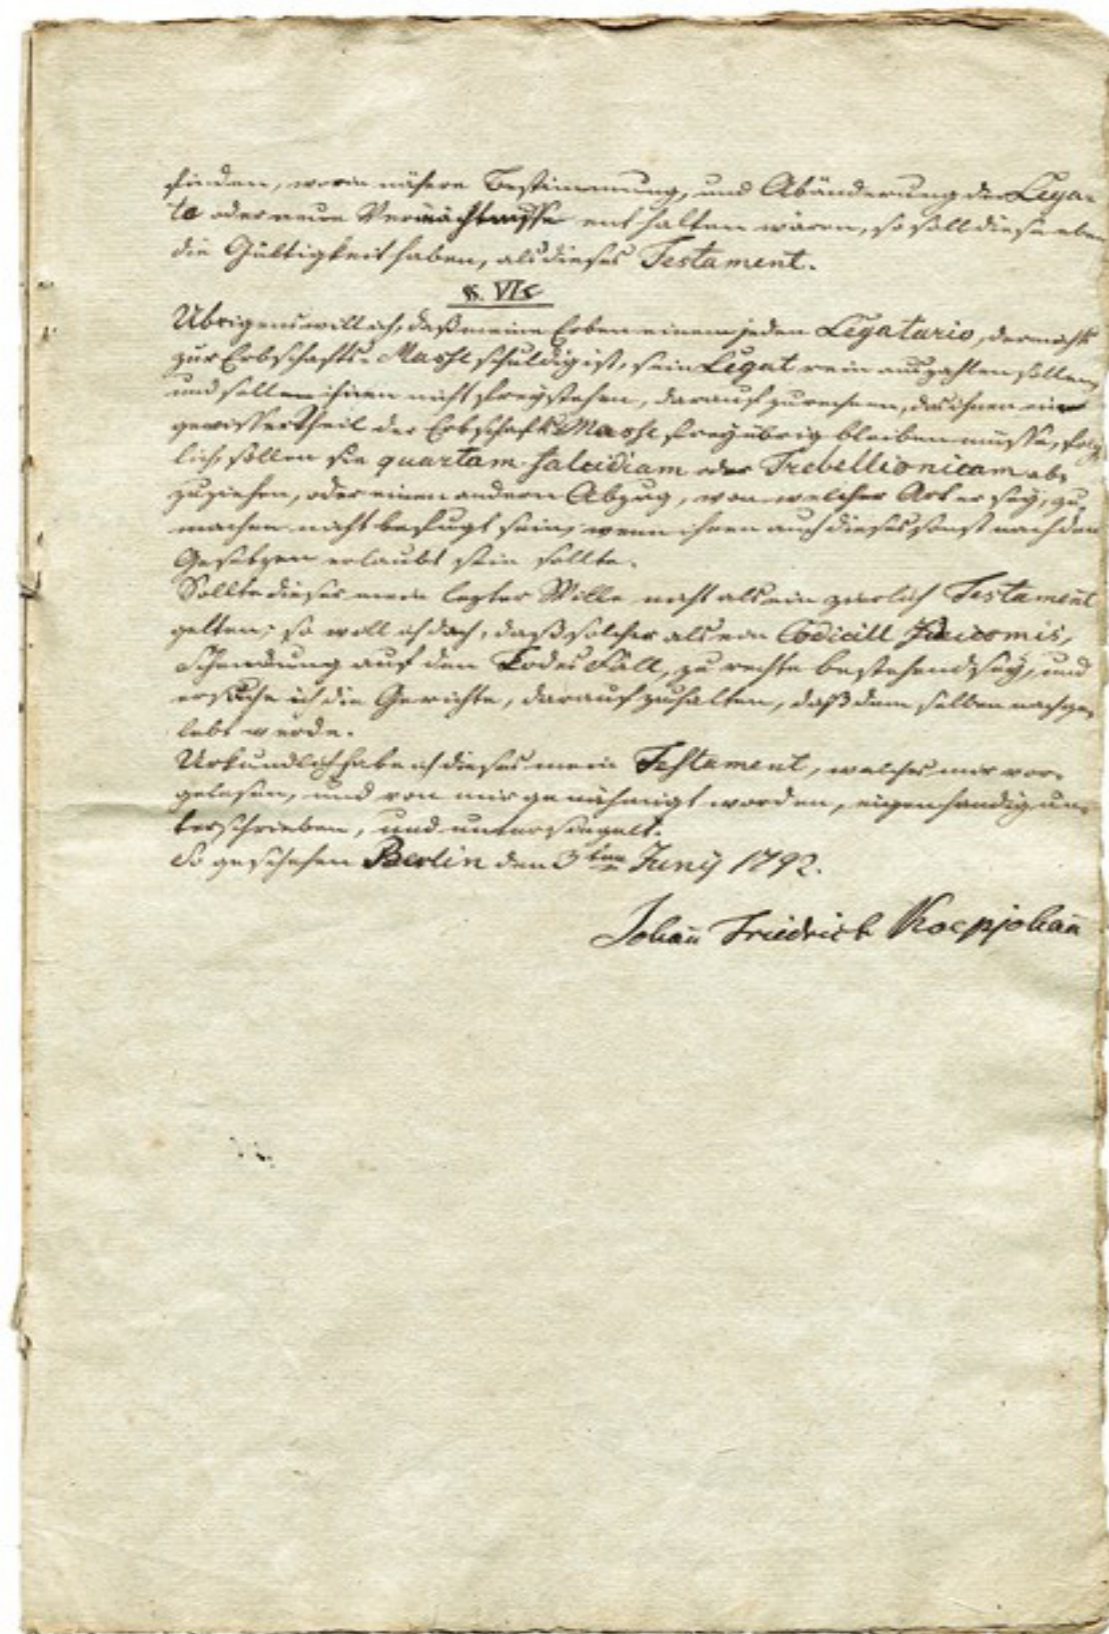 finden, worin nähere Bestimmung, und Abänderung der Lega-
te oder neue Vermächtnisse enthalten wären, so soll diese eben
die Gültigkeit haben, als dieses Testament.
§. VI.
Übrigens will ich, daß meine Erben einem jeden Legatario, der nichts
zur Erbschafts-Masse schuldig ist, sein Legat rein auszahlen sollen,
und soll ihnen nicht freystehen, darauf zu rechnen, daß ihnen ein
gewisser Theil der Erbschafts Masse frey übrig bleiben müsse, folg-
lich, sollen sie quartam falcidiam oder Trebellionicam ab-
zuziehen, oder einen andern Abzug, von welcher Art er sey, zu
machen nicht befugt sein, wenn ihnen auch dieses sonst nach den
Gesetzen erlaubt sein sollte.
Sollte dieser mein lezter Wille nicht als ein zierlich Testament
gelten; so will ich doch, daß solcher als ein Codicill Fideicomis,
Schenckung auf den Todes Fall, zu rechte bestehend sey, und
ersuche ich die Gerichte, darauf zu halten, daß dem selben nachge-
lebt werde.
Urkundlich habe ich dieses mein Testament, welches mir vor-
gelesen, und von mir genähmigt worden, eigenhändig un-
terschrieben, und untersiegelt.
So geschehen Berlin den 3ten Junÿ 1792.
Johañ Friedrich Koepjohañ